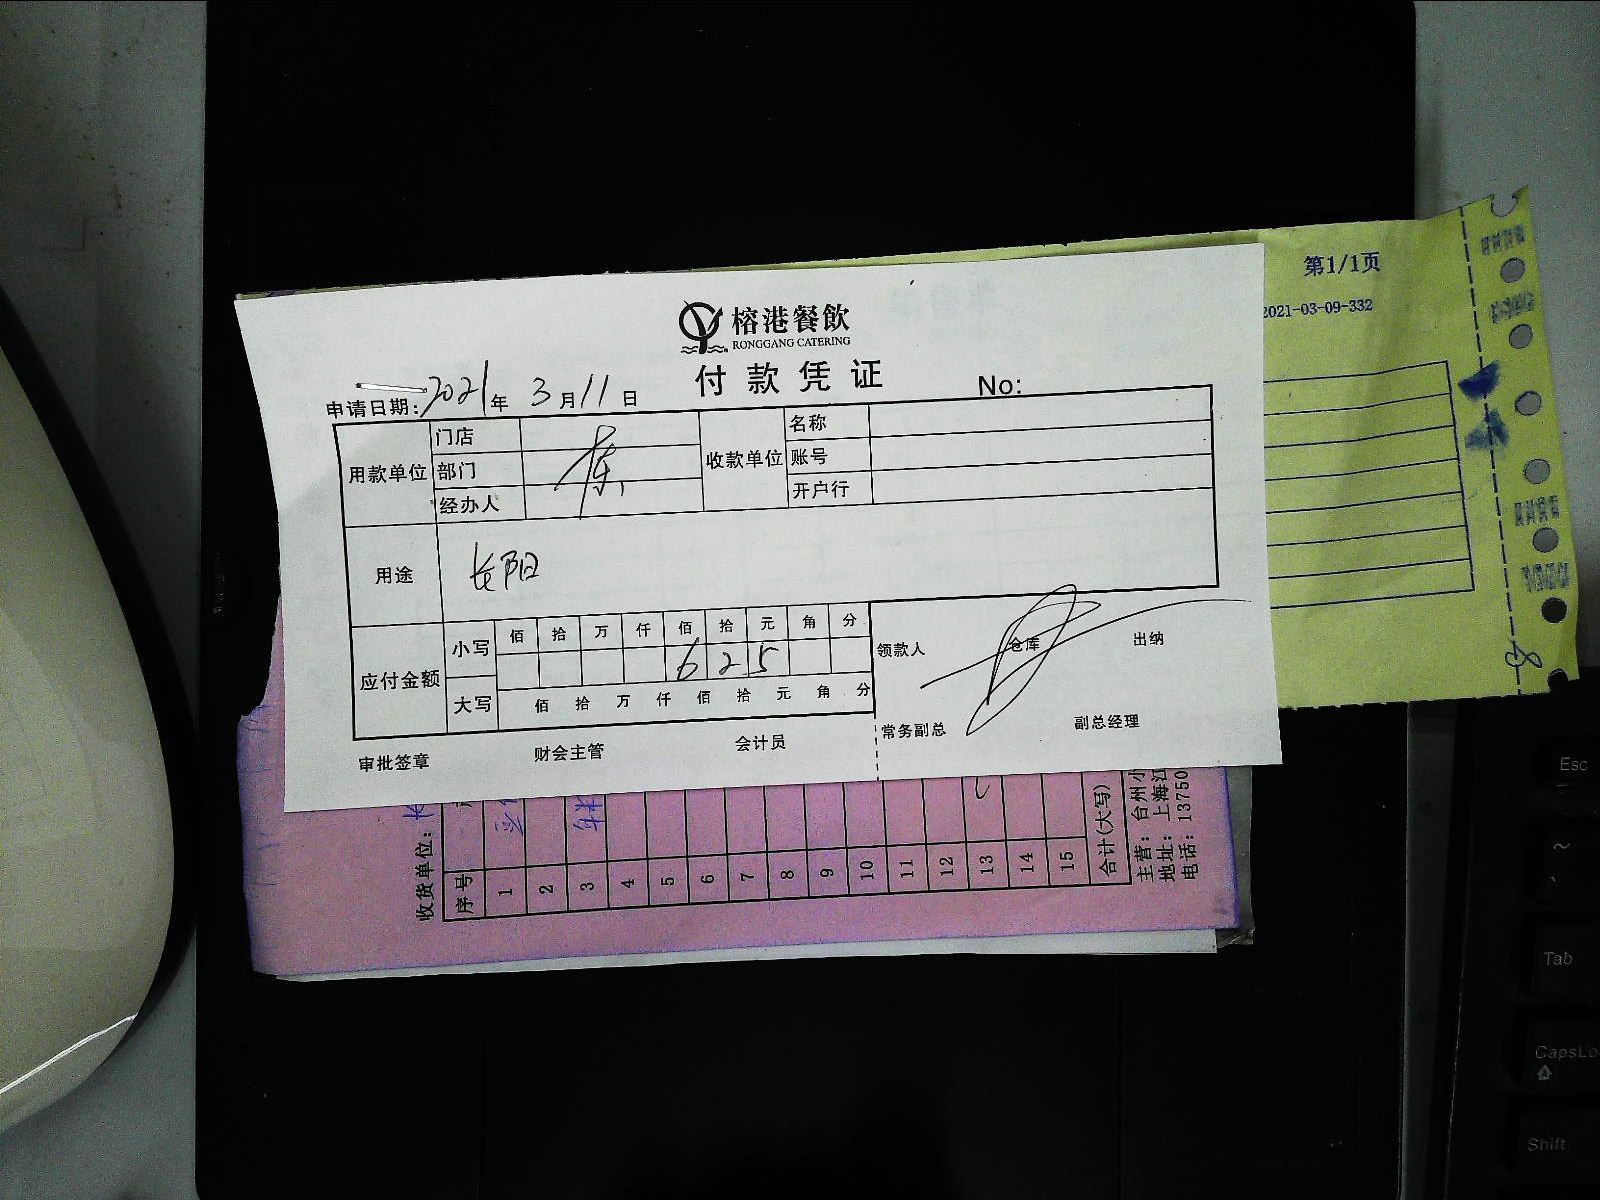 榕港餐飲
RONGGANG CATERING
付款凭证
No:
申请日期: 2021年 3月11日
用款单位 门店 部门 经办人
收款单位 名称 账号 开户行
用途 长阳
应付金额 小写 佰 拾 万 仟 佰 拾 元 角 分
6 2 5
大写 佰 拾 万 仟 佰 拾 元 角 分
领款人 仓库 出纳
常务副总 副总经理
审批签章 财会主管 会计员
第1/1页
2021-03-09-332
8
收货单位:
序号
1
2
3
4
5
6
7
8
9
10
11
12
13
14
15
合计(大写)
主营: 台州
地址: 上海
电话: 13750
Esc
~
Tab
CapsLo
Shift